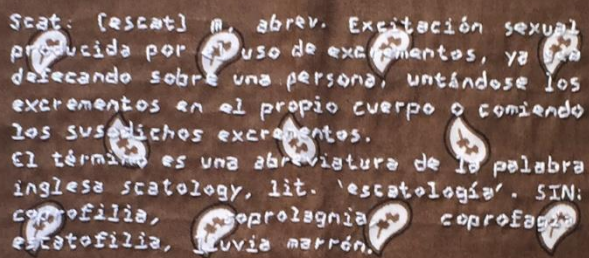 Scat: [escat] m. abrev. Excitación sexual
producida por el uso de excrementos, ya sea
defecando sobre una persona, untándose los
excrementos en el propio cuerpo o comiendo
los susodichos excrementos.
El término es una abreviatura de la palabra
inglesa scatology, lit. 'escatología'. SIN:
coprofilia, coprolagnia coprofagia
escatofilia, lluvia marrón.